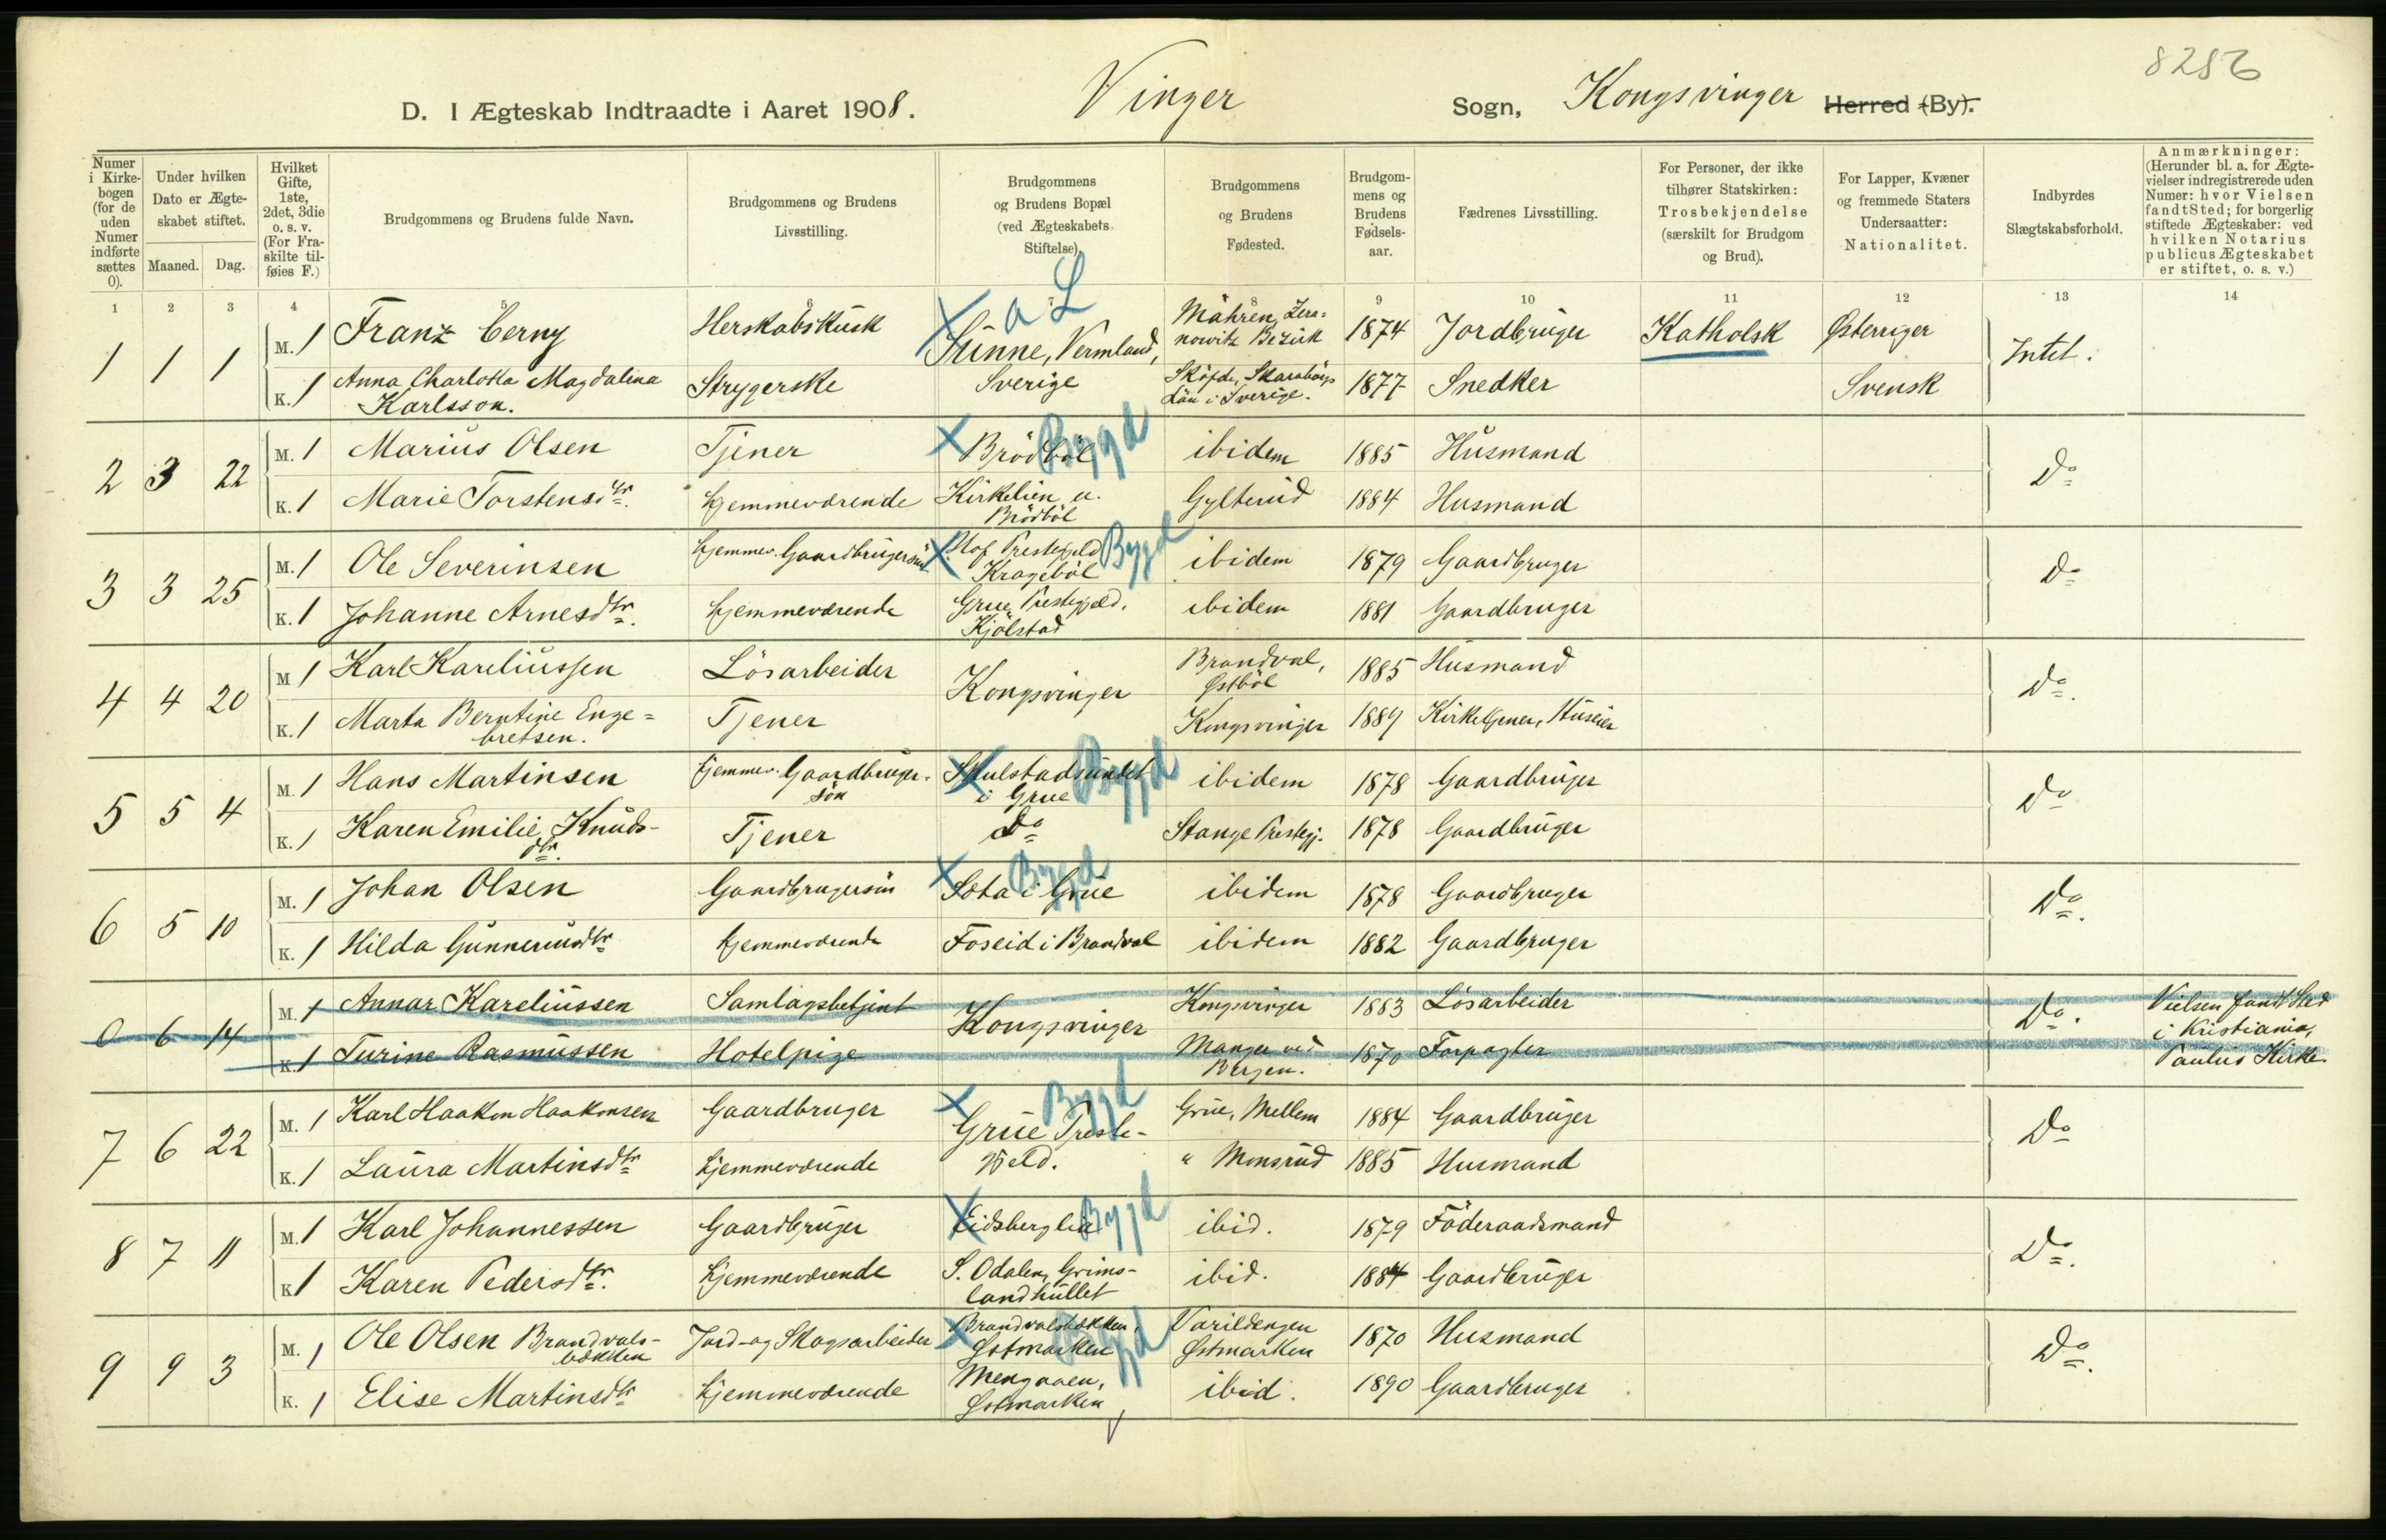 8286
D. I Ægteskab Indtraadte i Aaret 1908. Vinger Sogn, Kongsvinger Herred (By).
Numer i Kirkebogen (for de uden Numer indførte sættes 0).
Under hvilken Dato er Ægteskabet stiftet.
Maaned. Dag.
Hvilket Gifte, 1ste, 2det, 3die o. s. v. (For Fraskilte tilføies F.)
Brudgommens og Brudens fulde Navn.
Brudgommens og Brudens Livsstilling.
Brudgommens og Brudens Bopæl (ved Ægteskabets Stiftelse).
Brudgommens og Brudens Fødested.
Brudgommens og Brudens Fødselsaar.
Fædrenes Livsstilling.
For Personer, der ikke tilhører Statskirken: Trosbekjendelse (særskilt for Brudgom og Brud).
For Lapper, Kvæner og fremmede Staters Undersaatter: Nationalitet.
Indbyrdes Slægtskabsforhold.
Anmærkninger: (Herunder bl. a. for Ægtevielser indregistrerede uden Numer: hvor Vielsen fandt Sted; for borgerlig stiftede Ægteskaber: ved hvilken Notarius publicus Ægteskabet er stiftet, o. s. v.)
1 2 3 4 5 6 7 8 9 10 11 12 13 14
a L
1 1 1 M. 1 Franz Cerny Herskabskusk Sunne, Vermland, Mähren, Zeranowitz Bezirk 1874 Jordbruger Katholsk Østerriger Intet.
K. 1 Anna Charlotta Magdalena Karlsson. Strygerske Sverige Sköfde, Skaraborgs Län i Sverige. 1877 Snedker Svensk
2 3 22 M. 1 Marius Olsen Tjener Brödböl Bygd ibidem 1885 Husmand Do
K. 1 Marie Torstensdtr. Hjemmeværende Kirkelien u. Brödböl Gylterud 1884 Husmand
3 3 25 M. 1 Ole Severinsen Hjemmev. Gaardbrugersön Hof Prestegjeld Krageböl Bygd ibidem 1879 Gaardbruger Do
K. 1 Johanne Arnesdtr. Hjemmeværende Grue Prestegjeld, Kjölstad ibidem 1881 Gaardbruger
4 4 20 M 1 Karl Kareliussen Lösarbeider Kongsvinger Brandval, Østböl 1885 Husmand Do.
K. 1 Marta Berntine Engebretsen. Tjener Kongsvinger 1889 Kirketjener, Huseier
5 5 4 M. 1 Hans Martinsen Hjemmev. Gaardbrugersön Skulstadsundet i Grue Bygd ibidem 1878 Gaardbruger Do
K. 1 Karen Emilie Knudsdtr. Tjener Do Stange Prestegj. 1878 Gaardbruger
6 5 10 M. 1 Johan Olsen Gaardbrugersön Sota i Grue Bygd ibidem 1878 Gaardbruger Do.
K. 1 Hilda Gunnerusdtr Hjemmeværende Foseid i Brandval ibidem 1882 Gaardbruger
0 6 14 M. 1 Annar Kareliussen Samlagsbetjent Kongsvinger Kongsvinger 1883 Lösarbeider Do. Vielsen fandt Sted i Kristiania, Paulus Kirke.
K. 1 Turine Rasmussen Hotelpige Manger ved Bergen. 1870 Forpagter
7 6 22 M. 1 Karl Haakon Haakonsen Gaardbruger Grue Prestegjeld. Bygd Grue, Mellem 1884 Gaardbruger Do
K. 1 Laura Martinsdtr Hjemmeværende " Monsrud 1885 Husmand
8 7 11 M. 1 Karl Johannessen Gaardbruger Eidsberglia Bygd ibid. 1879 Föderaadsmand Do.
K 1 Karen Pedersdtr. Hjemmeværende S. Odalen, Grimslandhullet ibid. 1884 Gaardbruger
9 9 3 M. 1 Ole Olsen Brandvalsbækken Jord- og Skogsarbeider Brandvalsbækken, Østmarken Bygd Varildengen Østmarken 1870 Husmand Do.
K. 1 Elise Martinsdtr Hjemmeværende Mengaaen, Østmarken ibid. 1890 Gaardbruger